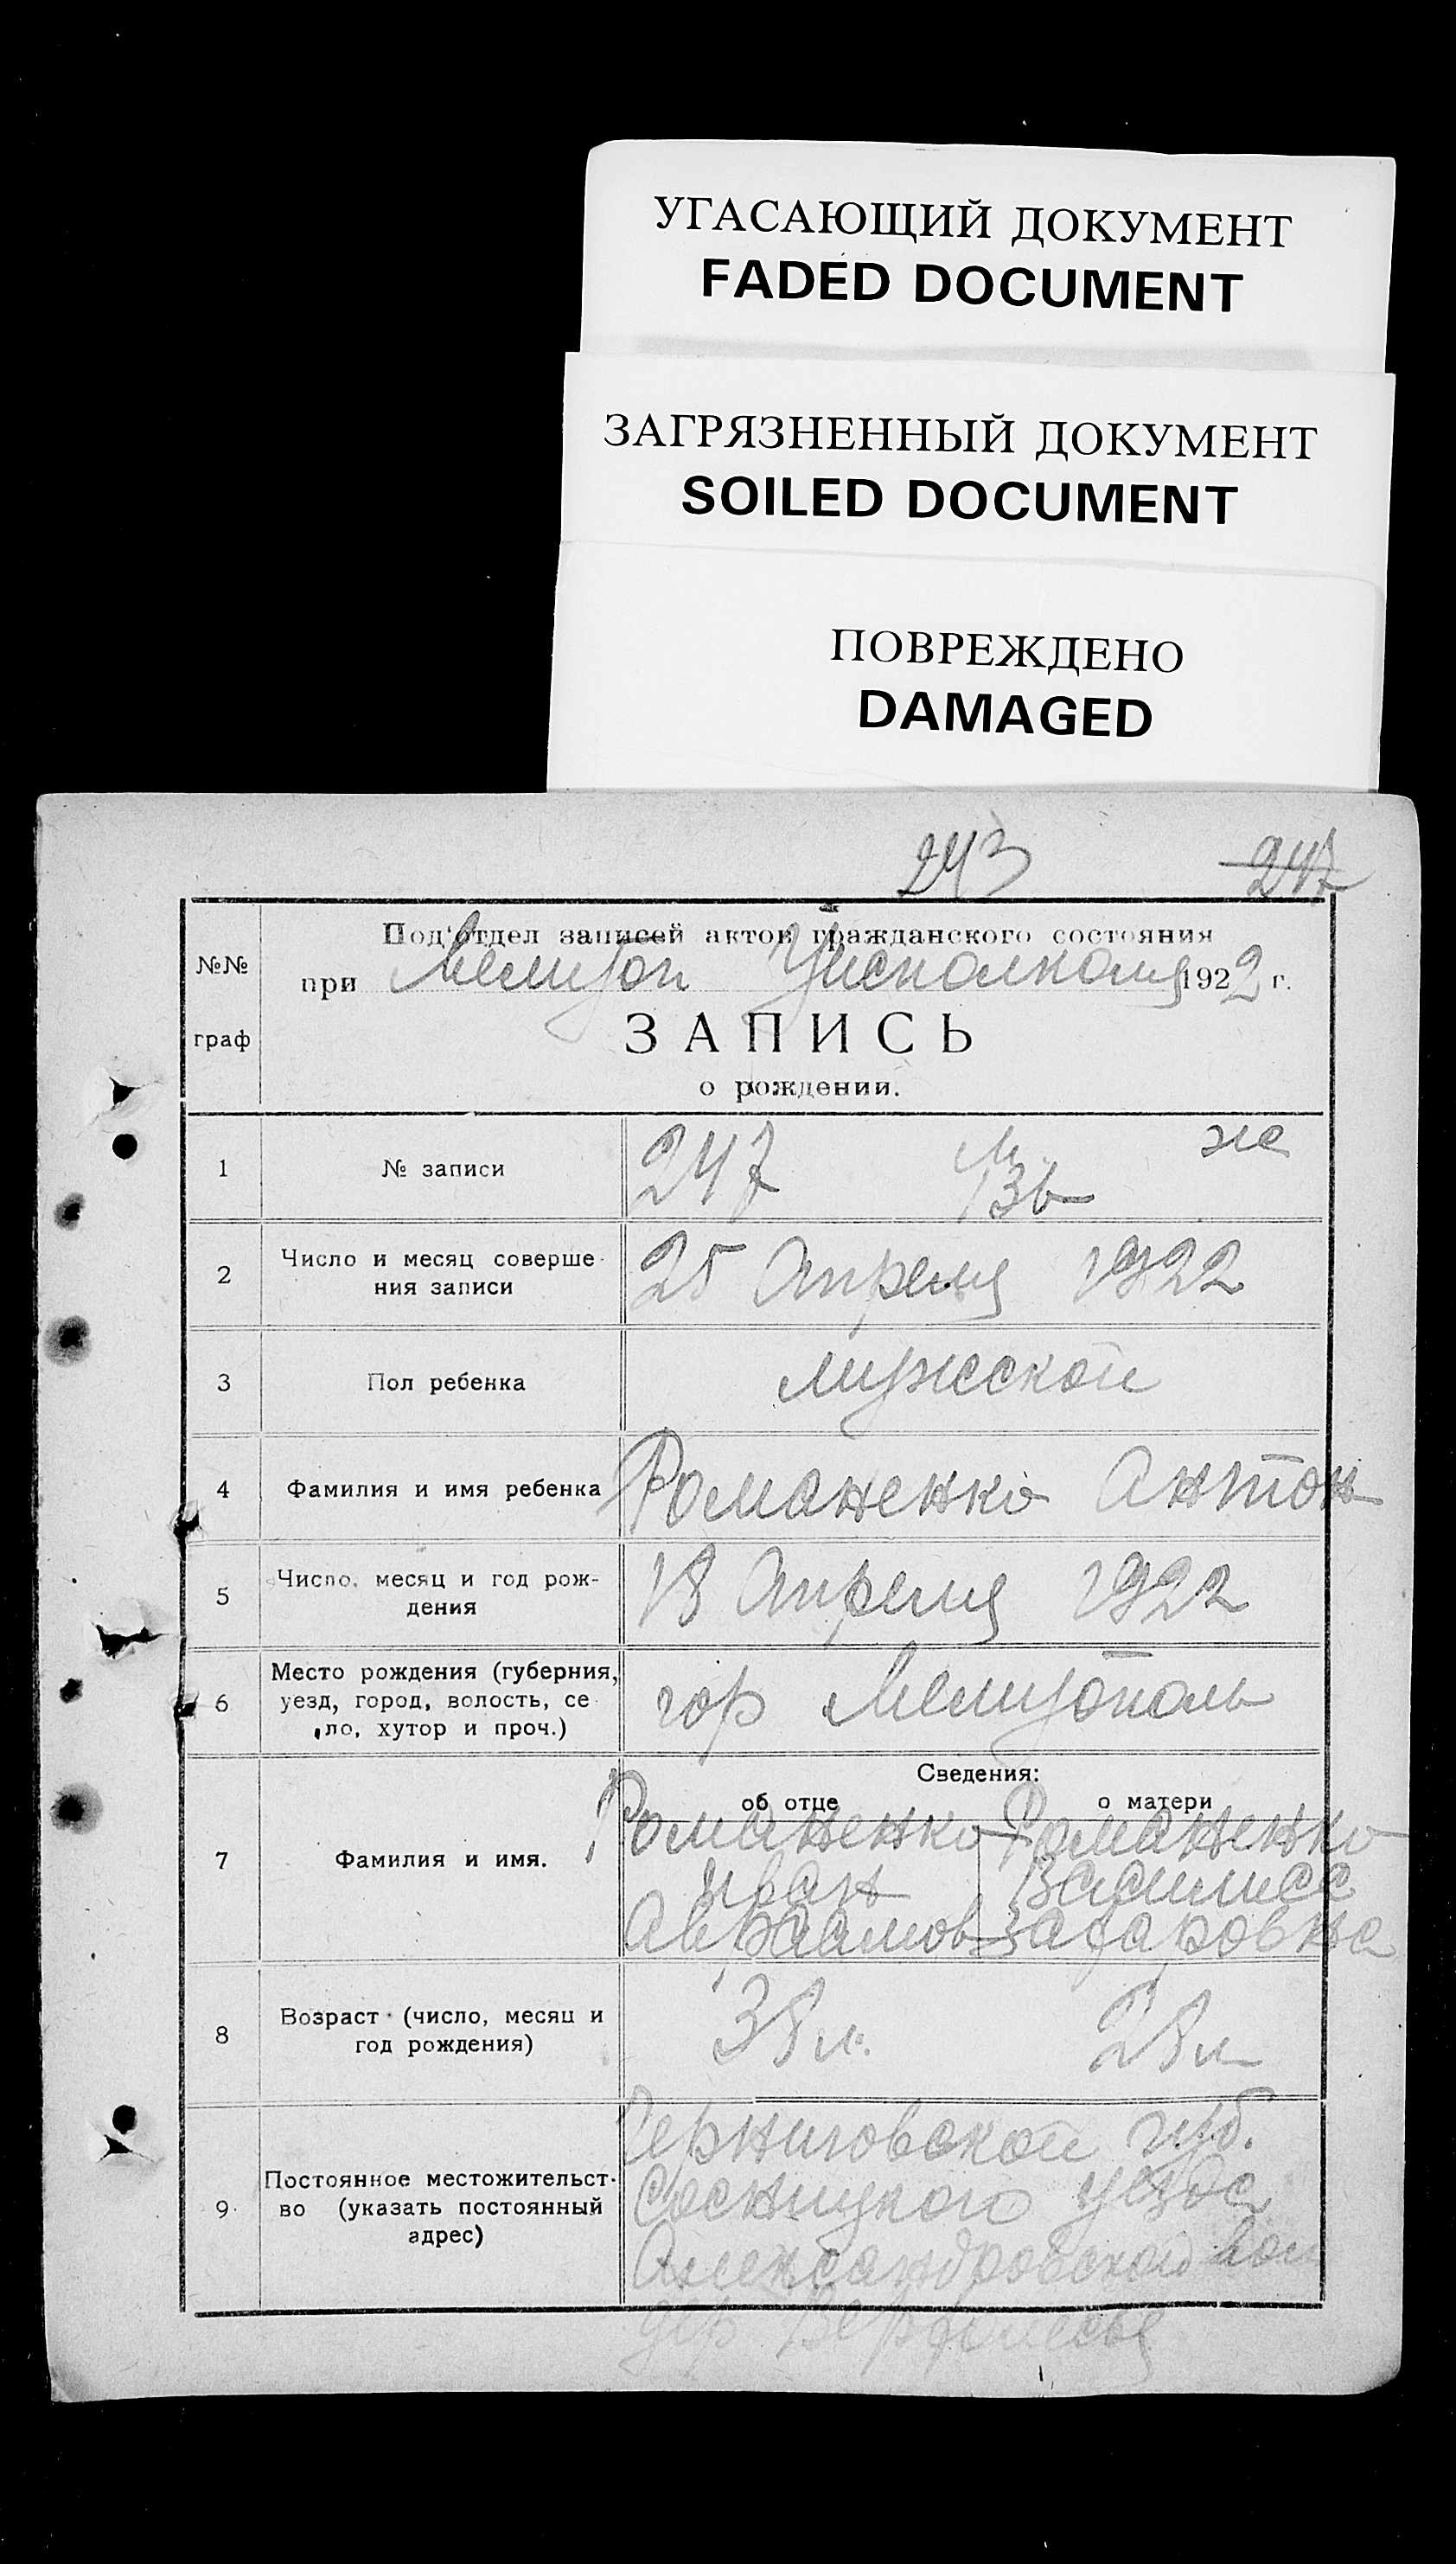 УГАСАЮЩИЙ ДОКУМЕНТ
FADED DOCUMENT
ЗАГРЯЗНЕННЫЙ ДОКУМЕНТ
SOILED DOCUMENT
ПОВРЕЖДЕНО
DAMAGED
243 247
№№ граф
Под'отдел записей актов гражданского состояния
при Мелитоп Уисполкома 1922 г.
ЗАПИСЬ
о рождении.
1 № записи 247 м. 136 ж
2 Число и месяц соверше-
ния записи 25 Апреля 1922
3 Пол ребенка мужской
4 Фамилия и имя ребенка Романенко Антон
5 Число, месяц и год рож-
дения 18 Апреля 1922
6 Место рождения (губерния,
уезд, город, волость, се
ло, хутор и проч.) гор Мелитополь
Сведения:
об отце о матери
7 Фамилия и имя. Романенко Романенко
Иван Василиса
Авраамов Захаровна
8 Возраст (число, месяц и
год рождения) 38 л. 28 л
9 Постоянное местожительст-
во (указать постоянный
адрес) Черниговской губ.
Сосницкого уезда
Александровской вол
дер